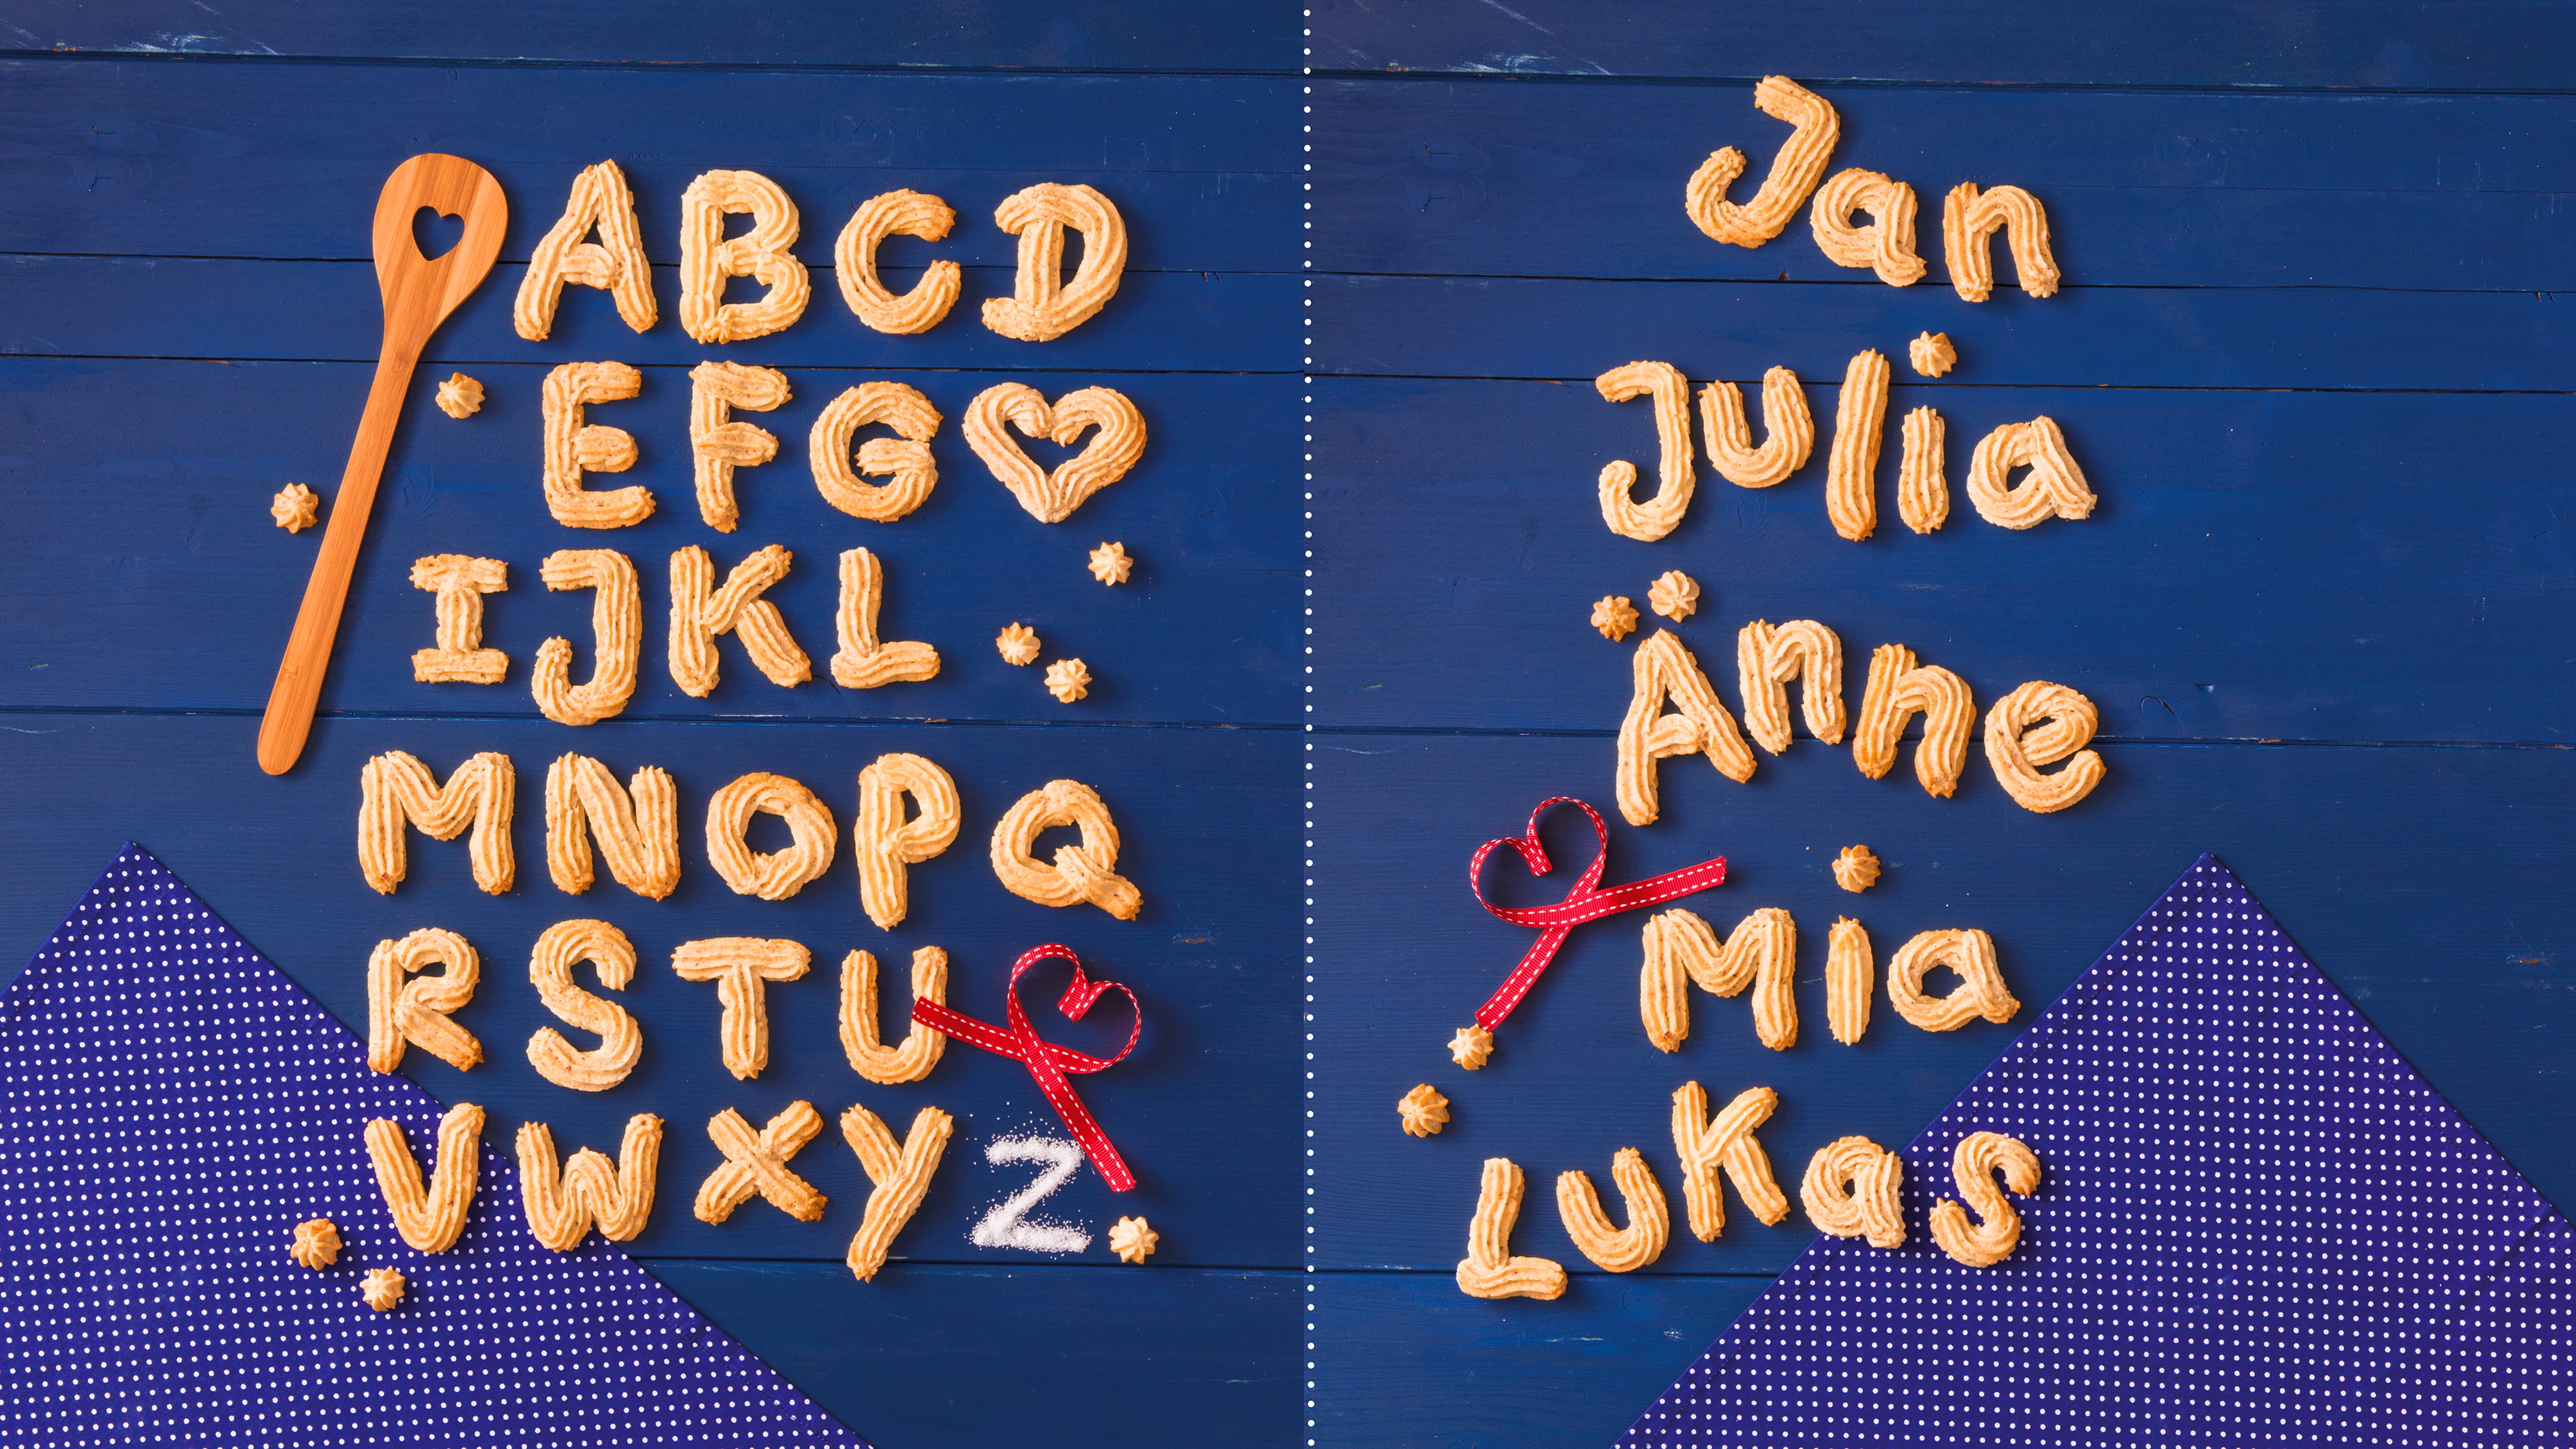 ABCD
EFG♥
IJKL
MNOPQ
RSTU
VWXYZ
Jan
Julia
Änne
Mia
Lukas